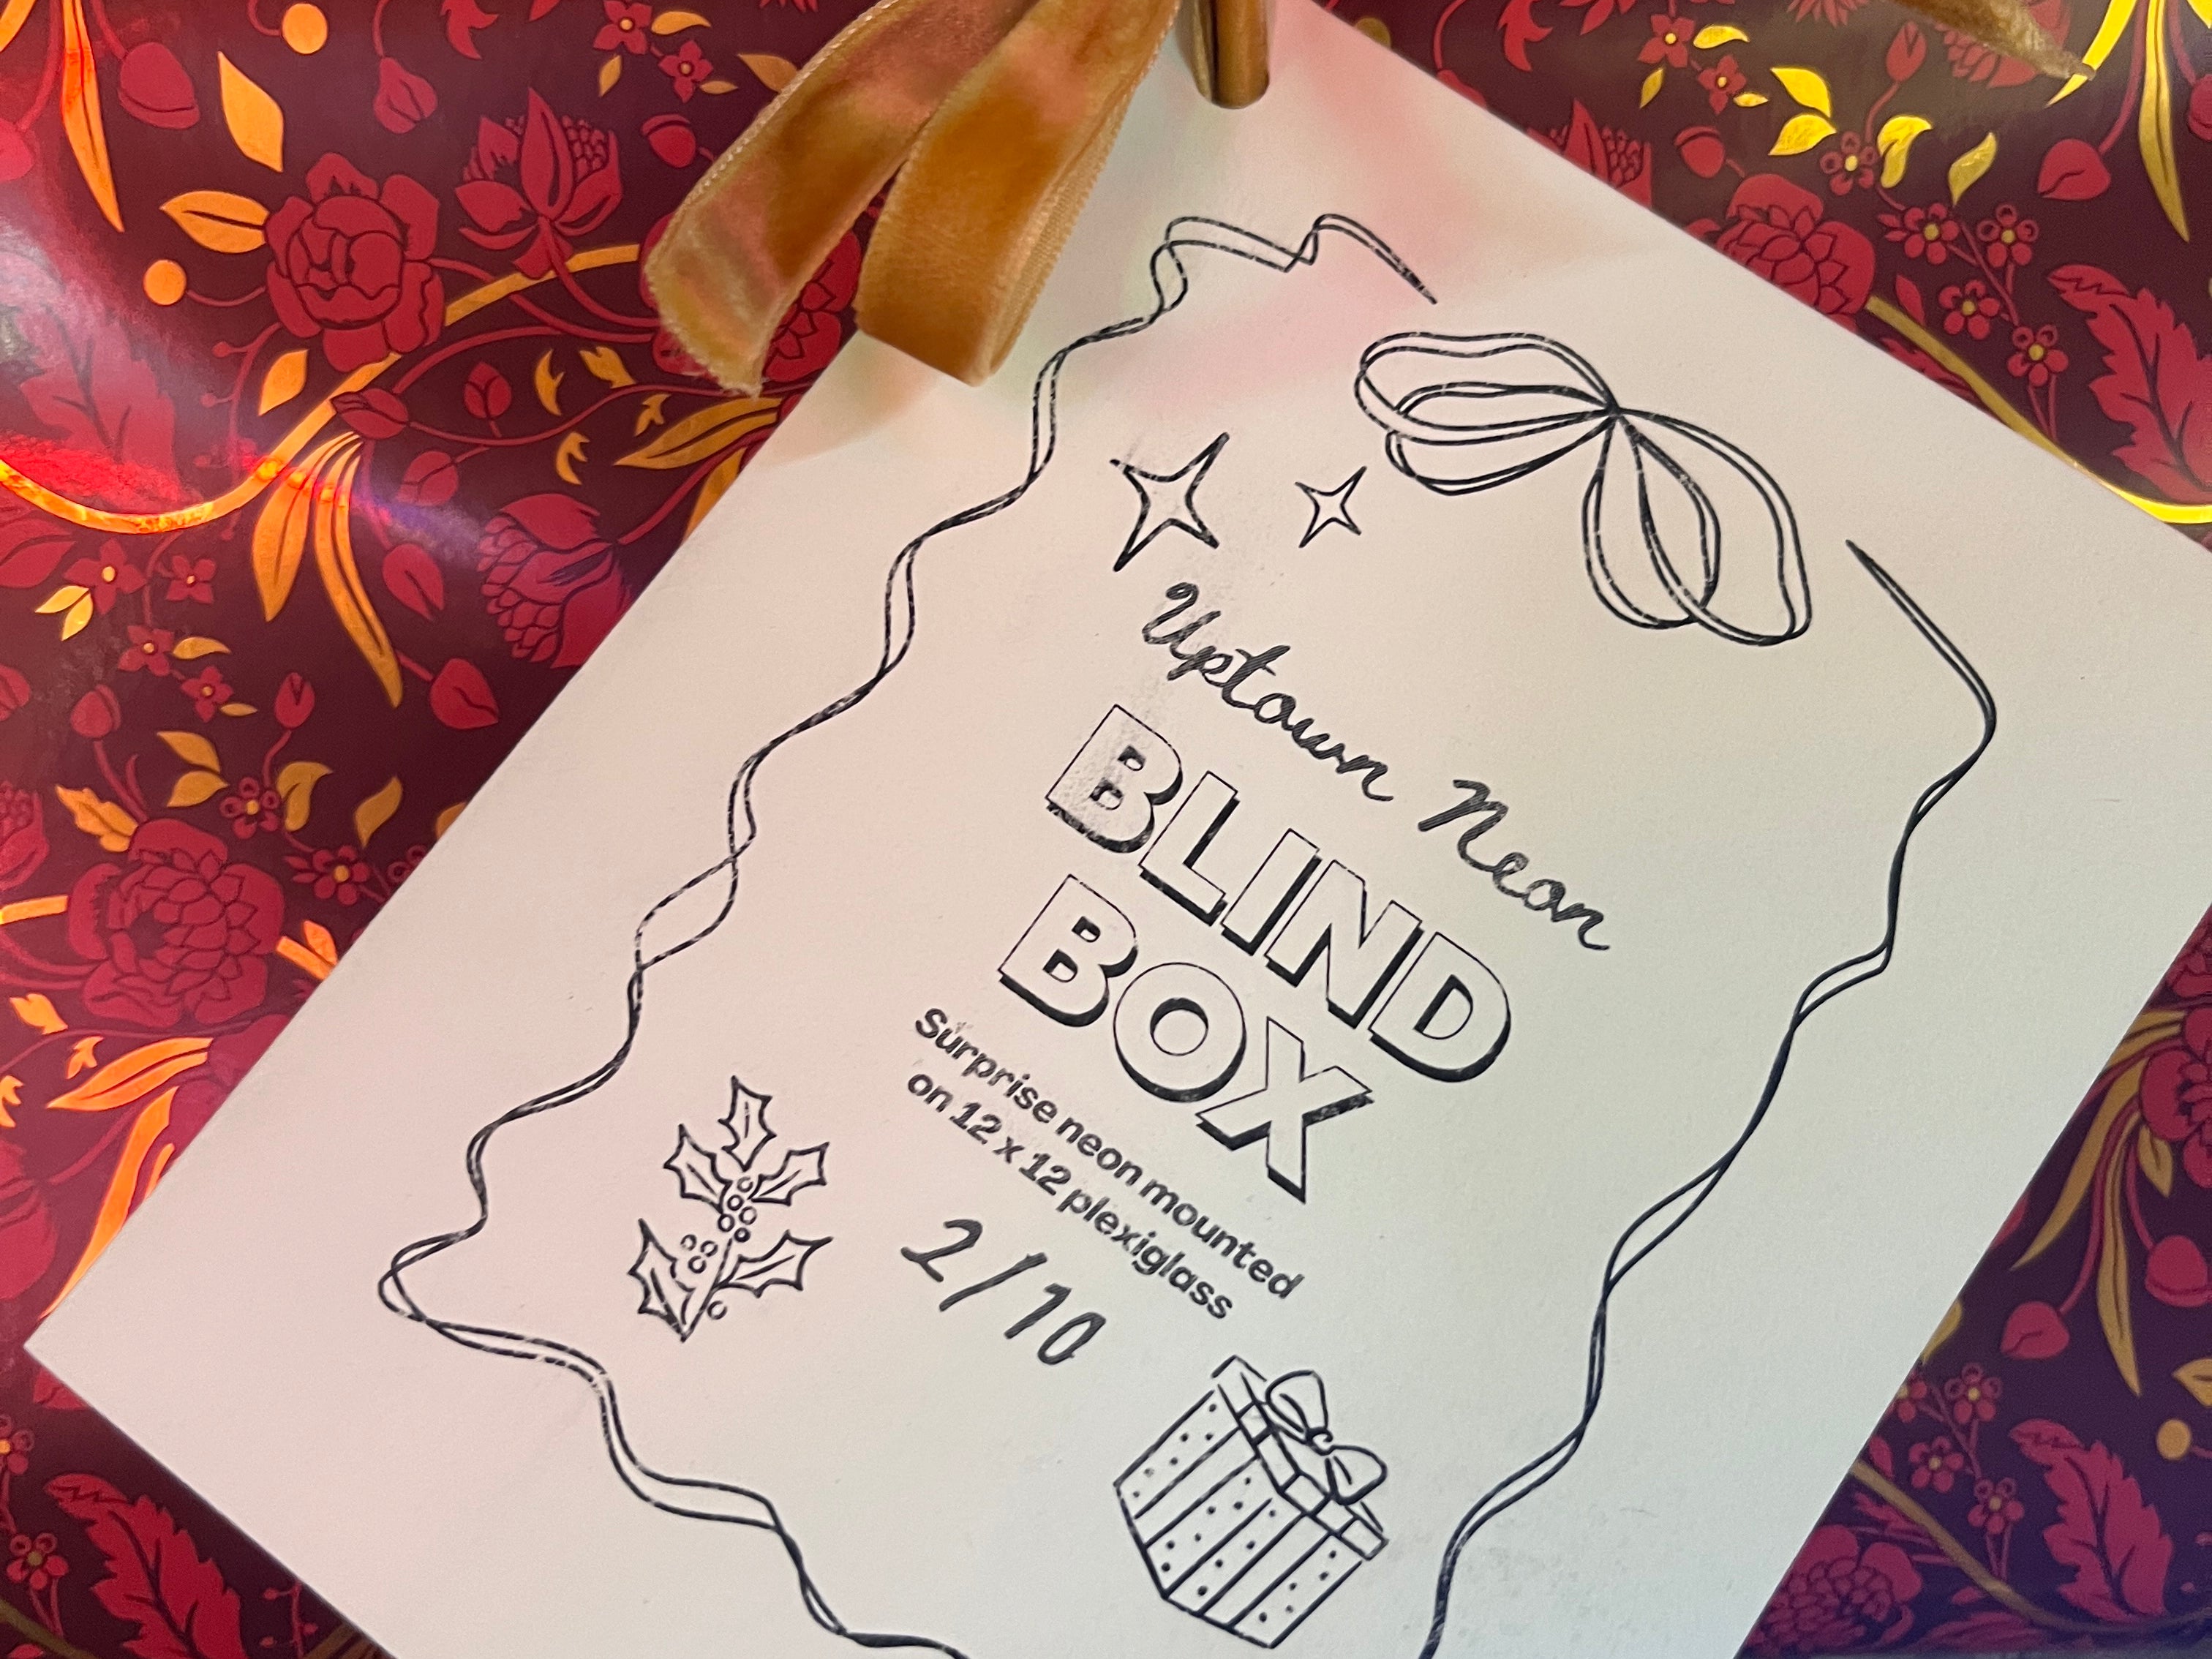 Uptown Neon
BLIND
BOX
Surprise neon mounted
on 12 x 12 plexiglass
2/10